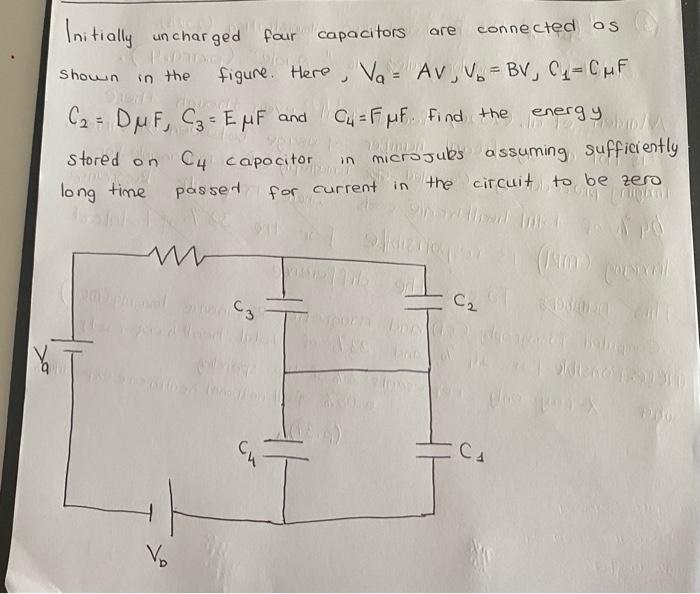 Initially uncharged four capacitors are connected as
shown in the figure. Here, Va = AV, Vb = BV, C1 = CμF
C2 = DμF, C3 = EμF and C4 = FμF. Find the energy
stored on C4 capacitor in microjubs assuming sufficiently
long time passed for current in the circuit to be zero
C3
C2
Va
C4
C1
Vb